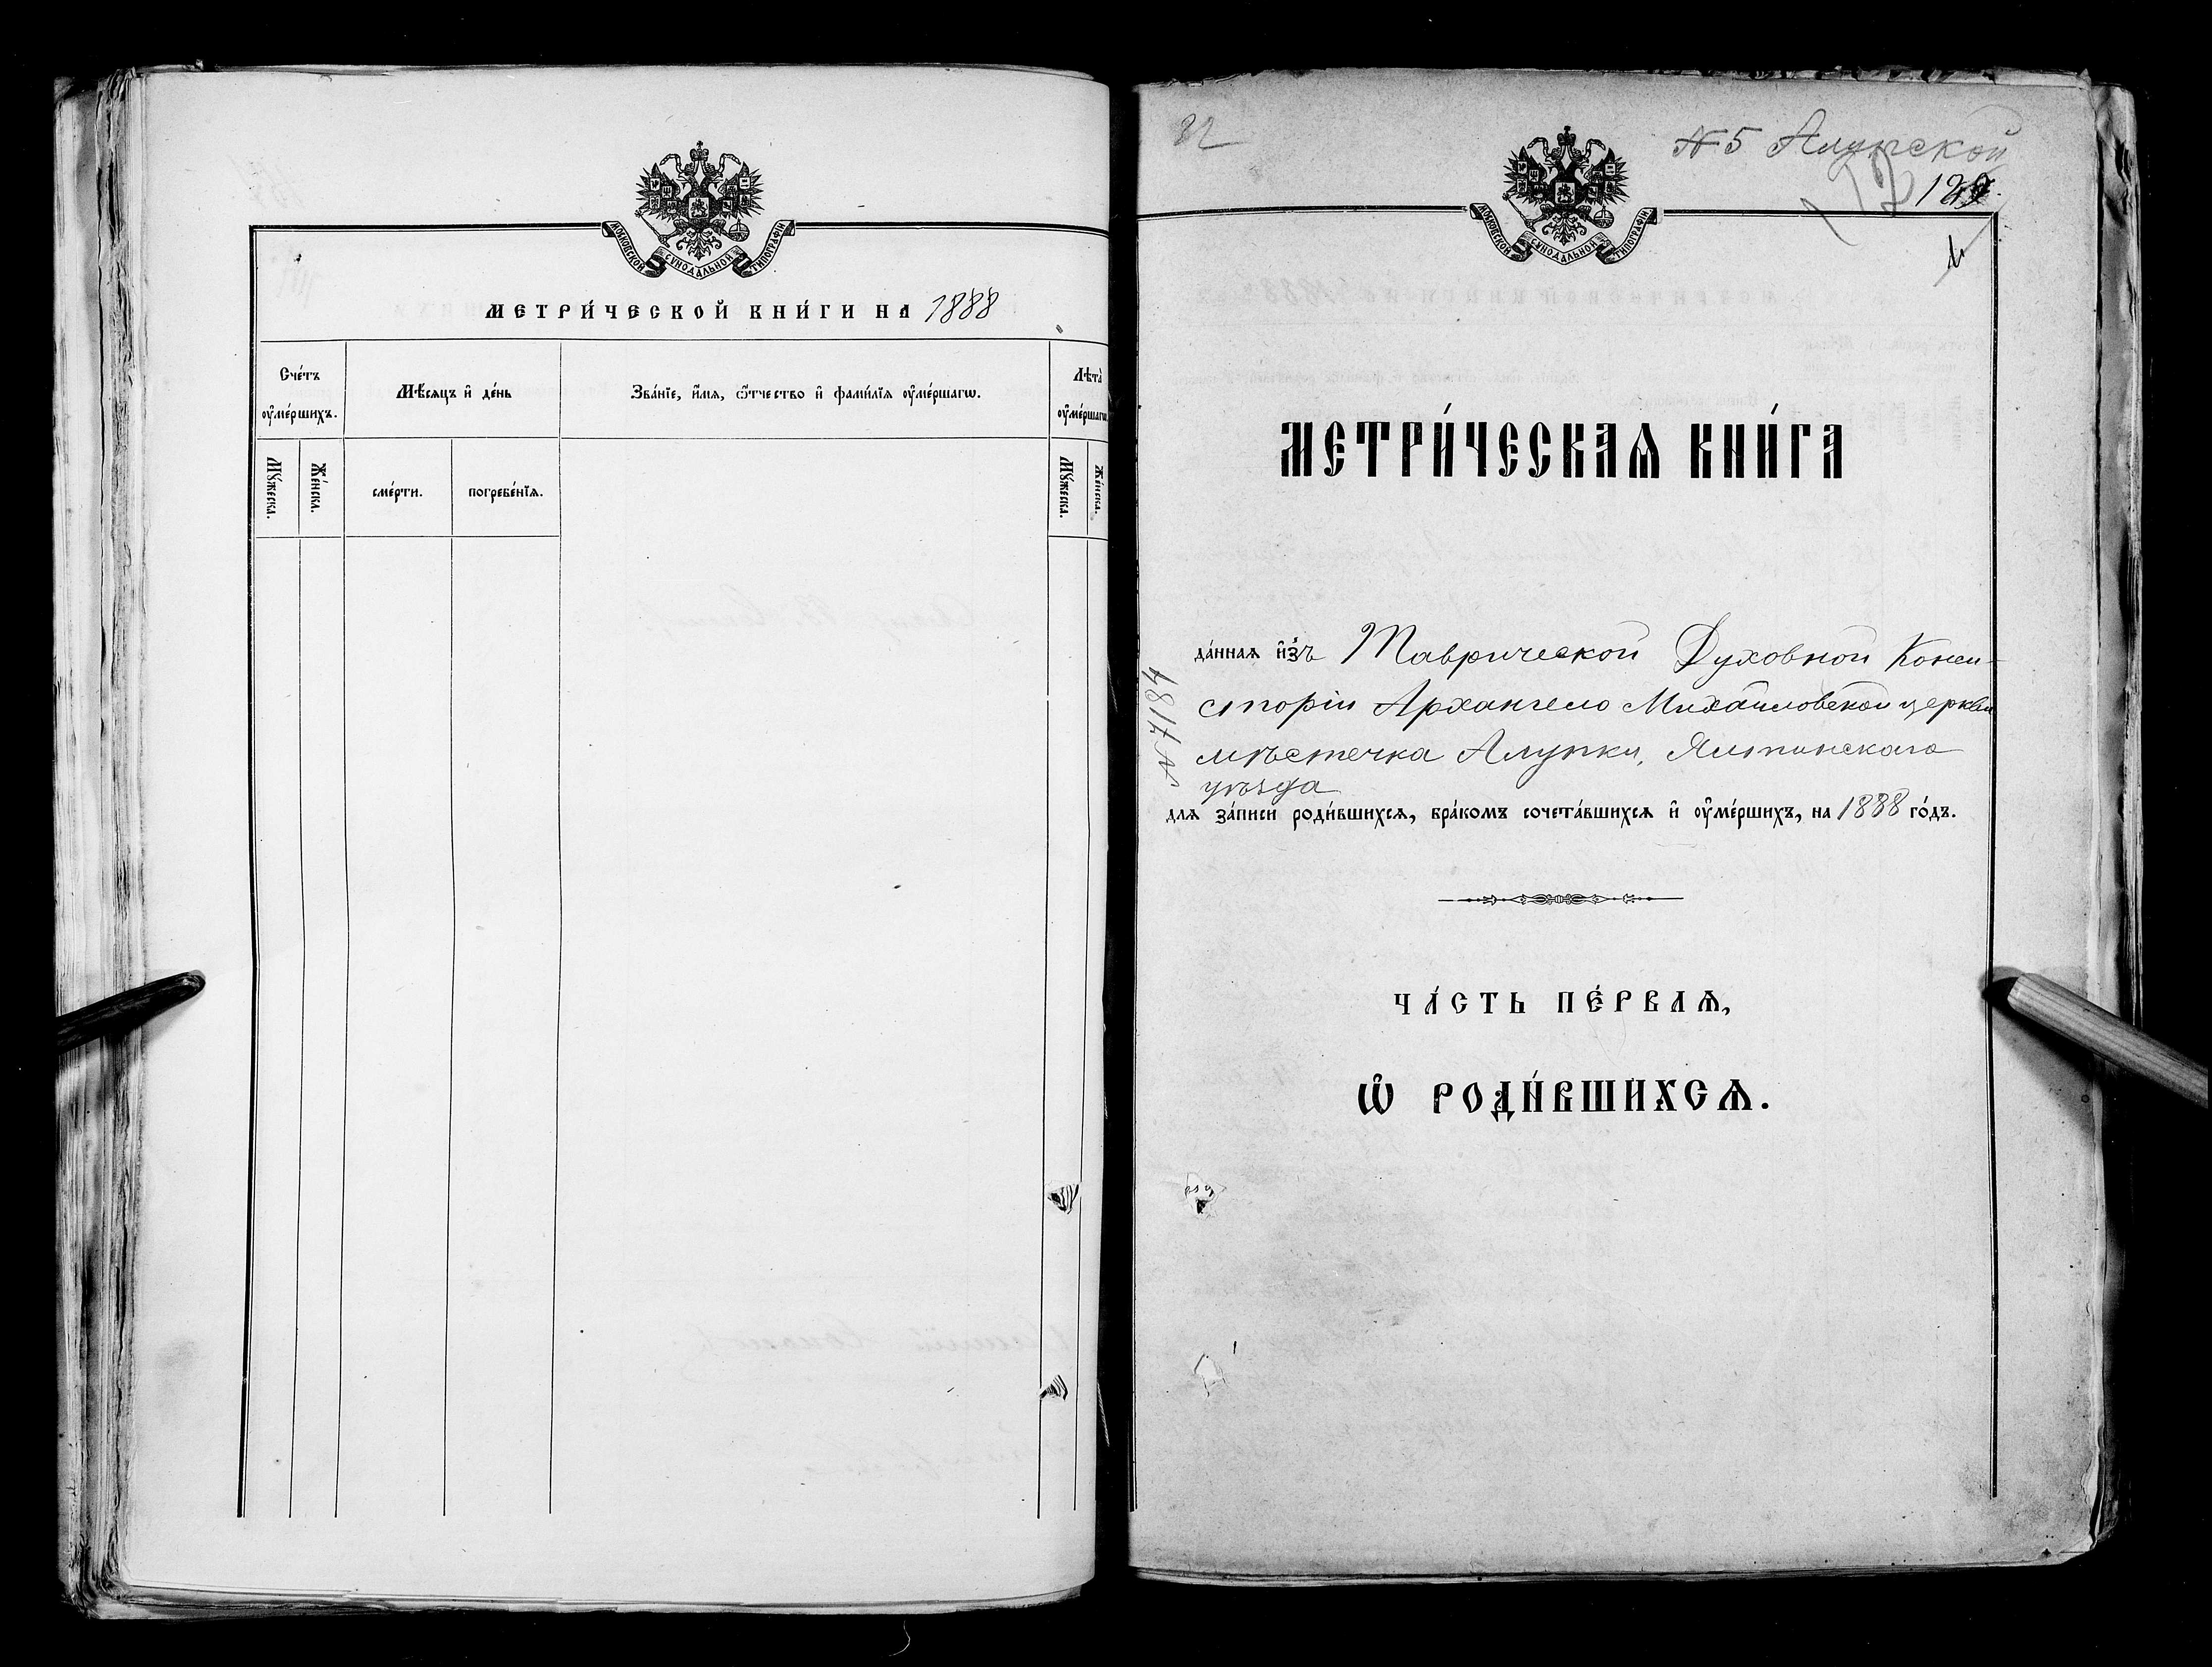 МОСКОВСКОЙ СѴНОДАЛЬНОЙ ТИПОГРАФІИ
МЕТРИ́ЧЕСКОЙ КНИ́ГИ НА 1888
Сче́тъ ᲂу҆ме́ршихъ.
Мѣ́сяцъ и҆ де́нь
Зва́нїе, и҆́мѧ, ѻ҆́тчество и҆ фами́лїѧ ᲂу҆ме́ршагѡ.
Лѣта̀ ᲂу҆ме́ршагѡ
Мꙋ́жеска.
Же́нска.
сме́рти.
погребе́нїѧ.
Мꙋ́жеска.
Же́нска.
82
№ 5 Алупской
12
МОСКОВСКОЙ СѴНОДАЛЬНОЙ ТИПОГРАФІИ
МЕТРИ́ЧЕСКАѦ КНИ́ГА
да́ннаѧ и҆з̾ Таврической Духовной Конси-
сторіи Архангело Михайловской церкви
мѣстечка Алупки, Ялтинскаго
уѣзда
№ 7184
длѧ за́писи роди́вшихсѧ, бра́комъ сочета́вшихсѧ и҆ ᲂу҆ме́ршихъ, на 1888 го́дъ.
ЧА́СТЬ ПЕ́РВАѦ,
Ѡ҆ РОДИ́ВШИХСѦ.